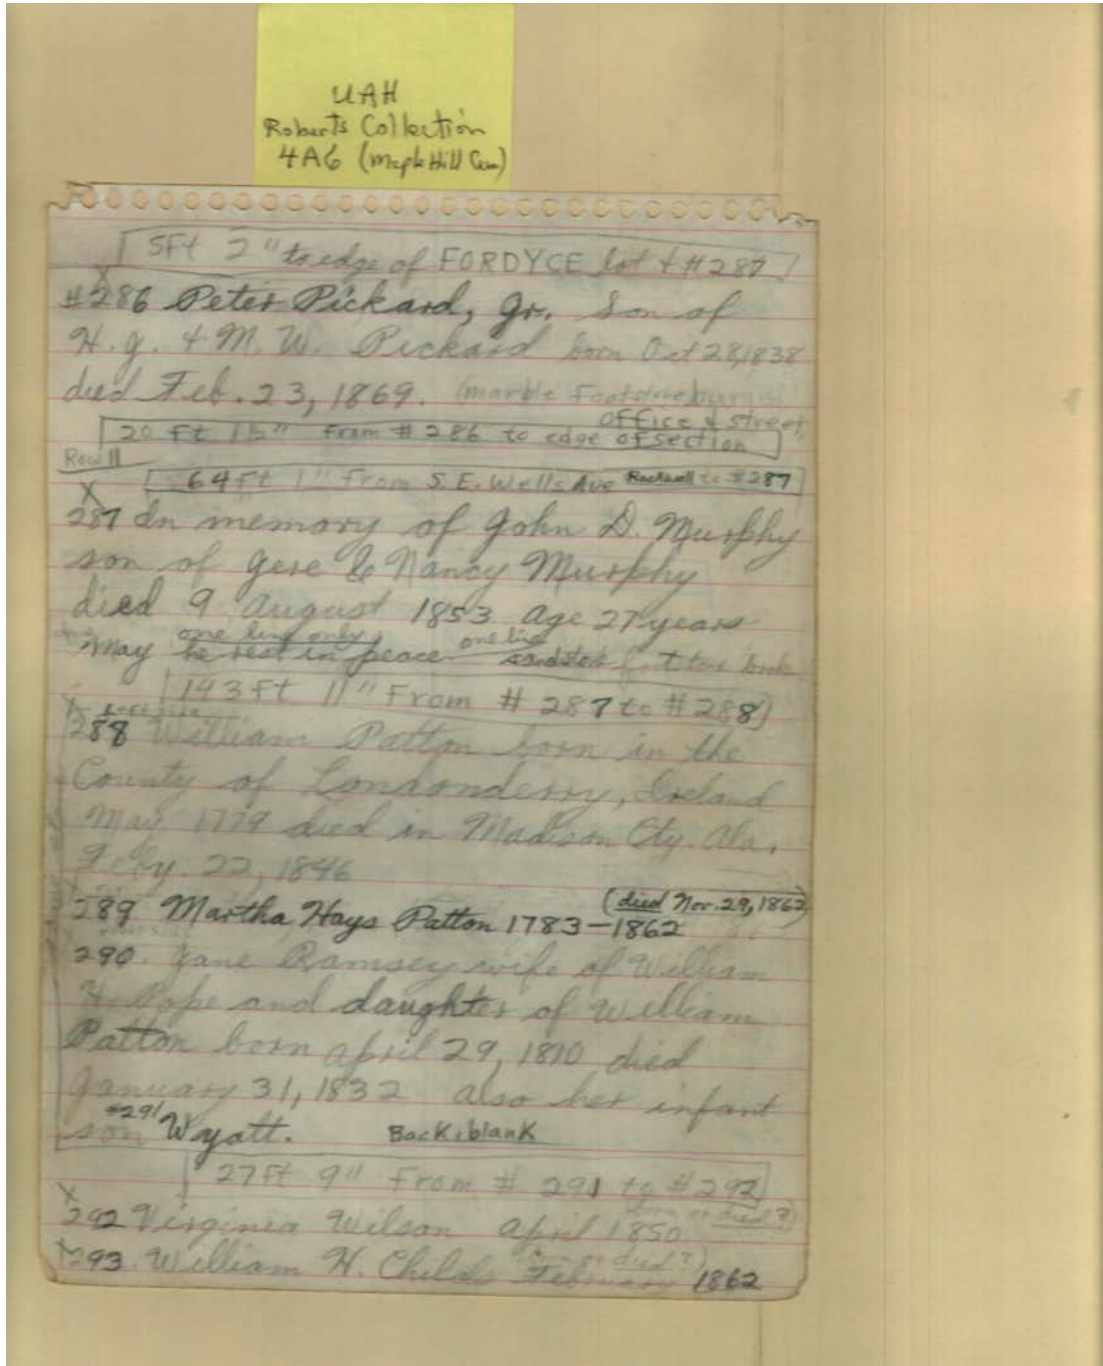 UAH
Roberts Collection
4A6 (Maple Hill Cem)
5Ft 2" to edge of FORDYCE lot + #287
X
#286 Peter Pickard, Jr. Son of
H. J. & M. W. Pickard born Oct 28, 1838
died Feb. 23, 1869. (marble Footstone
office & street
20 ft 15" From #286 to edge of section
Row 11
64ft 1" From S.E. Wells Ave Rockwell to #287
X
287 In memory of John D. Murphy
son of Jere & Nancy Murphy
died 9 August 1853 age 27 years
one line only one line
May he rest in peace
143 Ft 11" From #287 to #288
X
288 William Patton born in the
County of Londonderry, Ireland
May 1779 died in Madison Cty. Ala.
Feby. 22, 1846
(died Nov. 29, 1862)
289 Martha Hays Patton 1783-1862
290. Jane Ramsey wife of William
H. Pope and daughter of William
Patton born april 29, 1810 died
January 31, 1832 also her infant
#291
son Wyatt. Back: blank
27 Ft 9" From #291 to #292
X (born or died?)
292 Virginia Wilson April 1850
(born or died?)
X293. William H. Childs February 1862